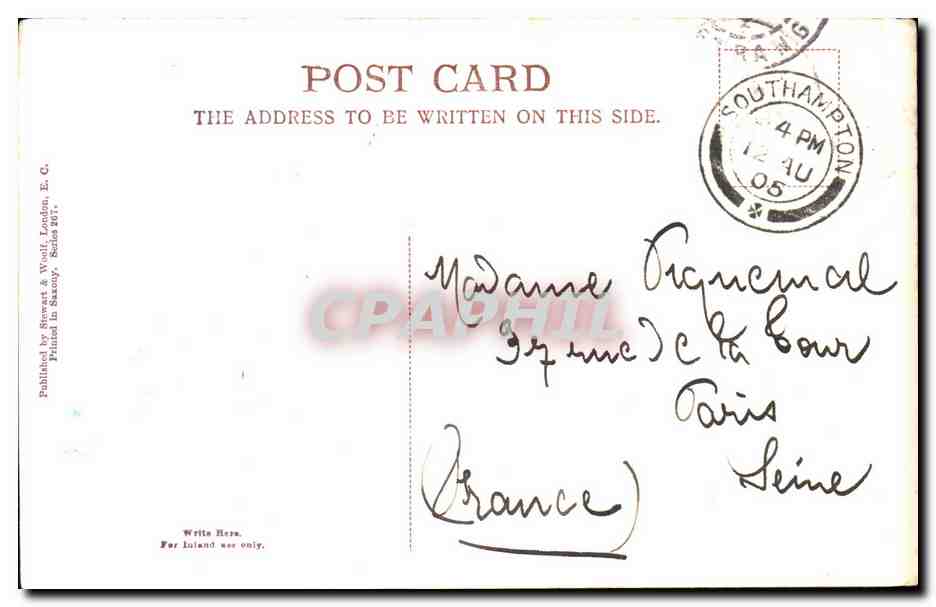 POST CARD
THE ADDRESS TO BE WRITTEN ON THIS SIDE.
RANG
SOUTHAMPTON
4 PM
12 AU
05
Published by Stewart & Woolf, London, E. C.
Printed in Saxony. Series 267.
Madame Piquemal
37 rue de la Tour
Paris
Seine
(France)
CPAPHIL
Write Here.
For Inland use only.